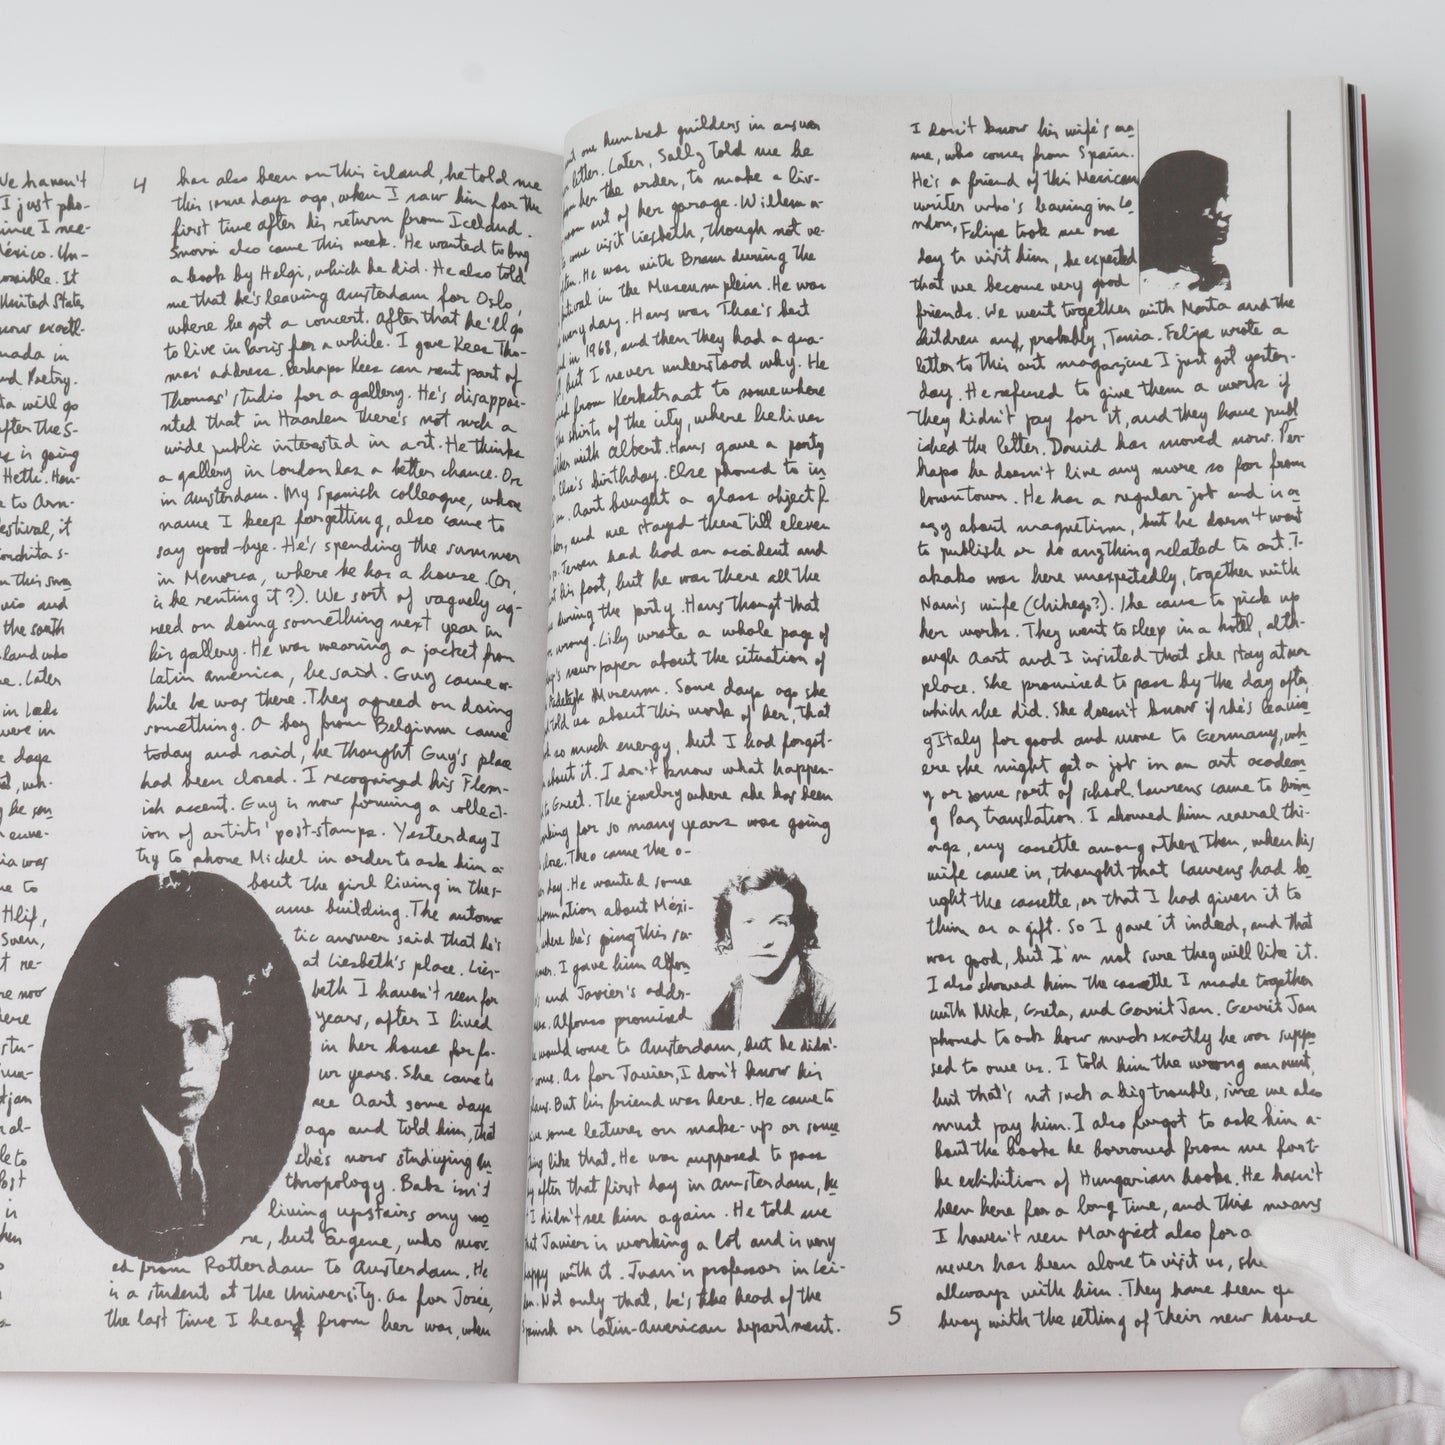 We haven't
I just pho-
since I nee-
México. Un-
possible. It
United States
now exactl-
nada in
nd Poetry.
ta will go
after the S-
is going
Hetti. Han-
e to Arn-
estival, it
onchita s-
n this swo
and
the south
land who
e. Later
in Leeds
were in
e days
wh-
y be son
ia was
me to
Hlif,
Sven,
t ne-
re now
here
stu-
tjan
al-
le to
Post
is
hen
4
has also been on this island, he told me
this some days ago, when I saw him for the
first time after his return from Iceland.
Snorri also came this week. He wanted to buy
a book by Helgi, which he did. He also told
me that he's leaving Amsterdam for Oslo,
where he got a concert. After that he'll go
to live in Paris for a while. I gave Kees Tho-
mas' address. Perhaps Kees can rent part of
Thomas' studio for a gallery. He's disappoi-
nted that in Haarlem there's not such a
wide public interested in art. He thinks
a gallery in London has a better chance. Or
in Amsterdam. My Spanish colleague, whose
name I keep forgetting, also came to
say good-bye. He's spending the summer
in Menorca, where he has a house. (Or,
is he renting it?). We sort of vaguely ag-
reed on doing something next year in
his gallery. He was wearing a jacket from
Latin America, he said. Guy came w-
hile he was there. They agreed on doing
something. A boy from Belgium came
today and said, he thought Guy's place
had been closed. I recognized his Flem-
ish accent. Guy is now forming a collect-
ion of artists' post-stamps. Yesterday I
try to phone Michel in order to ask him a-
bout the girl living in the s-
ame building. The automa-
tic answer said that he's
at Liesbeth's place. Lies-
beth I haven't seen for
years, after I lived
in her house for fo-
ur years. She came to
see Aart some days
ago and told him, that
she's now studying an
thropology. Babs isn't
living upstairs any mo
re, but Eugene, who mov-
ed from Rotterdam to Amsterdam. He
is a student at the University. As for Josée,
the last time I heard from her was, when
one hundred guilders in answer
letter. Later, Sally told me he
her the order, to make a liv-
room out of her garage. Willem a-
come visit Liesbeth, though not ve-
ften. He was with Bram during the
festival in the Museumplein. He was
every day. Hans was Thae's best
in 1968, and then they had a qua-
but I never understood why. He
from Kerkstraat to somewhere
skirts of the city, where he lives
with Albert. Hans gave a party
Else's birthday. Else phoned to in
Aart bought a glass object f
and we stayed there till eleven
Jeroen had had an accident and
his foot, but he was there all the
during the party. Hans thougt that
wrong. Lily wrote a whole page of
newspaper about the situation of
Stedelijk Museum. Some days ago she
told us about this work of her, that
so much energy, but I had forgot-
about it. I don't know what happen-
to Greet. The jewelry where she has been
working for so many years was going
close. Theo came the o-
day. He wanted some
formation about Méxi-
where he's going this su-
mer. I gave him Alfon
and Javier's addr-
Alfonso promised
would come to Amsterdam, but he didn't
come. As for Javier, I don't know his
But his friend was here. He came to
some lectures on make-up or some
thing like that. He was supposed to pass
after that first day in Amsterdam, he
I didn't see him again. He told me
that Javier is working a lot and is very
happy with it. Juan is professor in Lei-
den. Not only that, he's the head of the
Spanish or Latin-American department.
I don't know his wife's na
me, who comes from Spain.
He's a friend of this Mexican
writer who's leaving in Lo
ndon, Felipe took me one
day to visit him, he expected
that we become very good
friends. We went together with Marta and the
children and, probably, Tania. Felipe wrote a
letter to this art magazine I just got yester-
day. He refused to give them a work if
they didn't pay for it, and they have publ
ished the letter. David has moved now. Per-
haps he doesn't live any more so far from
downtown. He has a regular job and is a
azy about magnetism, but he doesn't want
to publish or do anything related to art. T-
akako was here unexpectedly, together with
Nam's wife (Chikego?). She came to pick up
her works. They went to sleep in a hotel, alth-
ough Aart and I insisted that she stay at our
place. She promised to pass by the day after,
which she did. She doesn't know if she's leavin
g Italy for good and move to Germany, wh-
ere she might get a job in an art academ
y or some sort of school. Laurens came to brin
g Paz translation. I showed him several thi-
ngs, any cassette among others. Then, when his
wife came in, thought that Laurens had bo
ught the cassette, or that I had given it to
him as a gift. So I gave it indeed, and that
was good, but I'm not sure they will like it.
I also showed him the cassette I made together
with Mick, Greta, and Gerrit Jan. Gerrit Jan
phoned to ask how much exactly he was suppo
sed to owe us. I told him the wrong amount,
but that's not such a big trouble, since we also
must pay him. I also forgot to ask him a-
bout the books he borrowed from me for t-
he exhibition of Hungarian books. He hasn't
been here for a long time, and this means
I haven't seen Margriet also for a
never has been alone to visit us, she
allways with him. They have been
busy with the setting of their new house
5